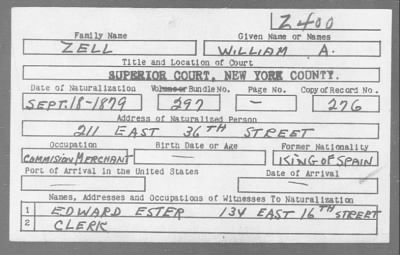 Z400
Family Name Given Name or Names
ZELL WILLIAM A.
Title and Location of Court
SUPERIOR COURT, NEW YORK COUNTY.
Date of Naturalization Volume or Bundle No. Page No. Copy of Record No.
SEPT. 18-1879 297 — 276
Address of Naturalized Person
211 EAST 36TH STREET
Occupation Birth Date or Age Former Nationality
COMMISION MERCHANT — KING OF SPAIN
Port of Arrival in the United States Date of Arrival
— —
Names, Addresses and Occupations of Witnesses To Naturalization
1 EDWARD ESTER 134 EAST 16TH STREET
2 CLERK